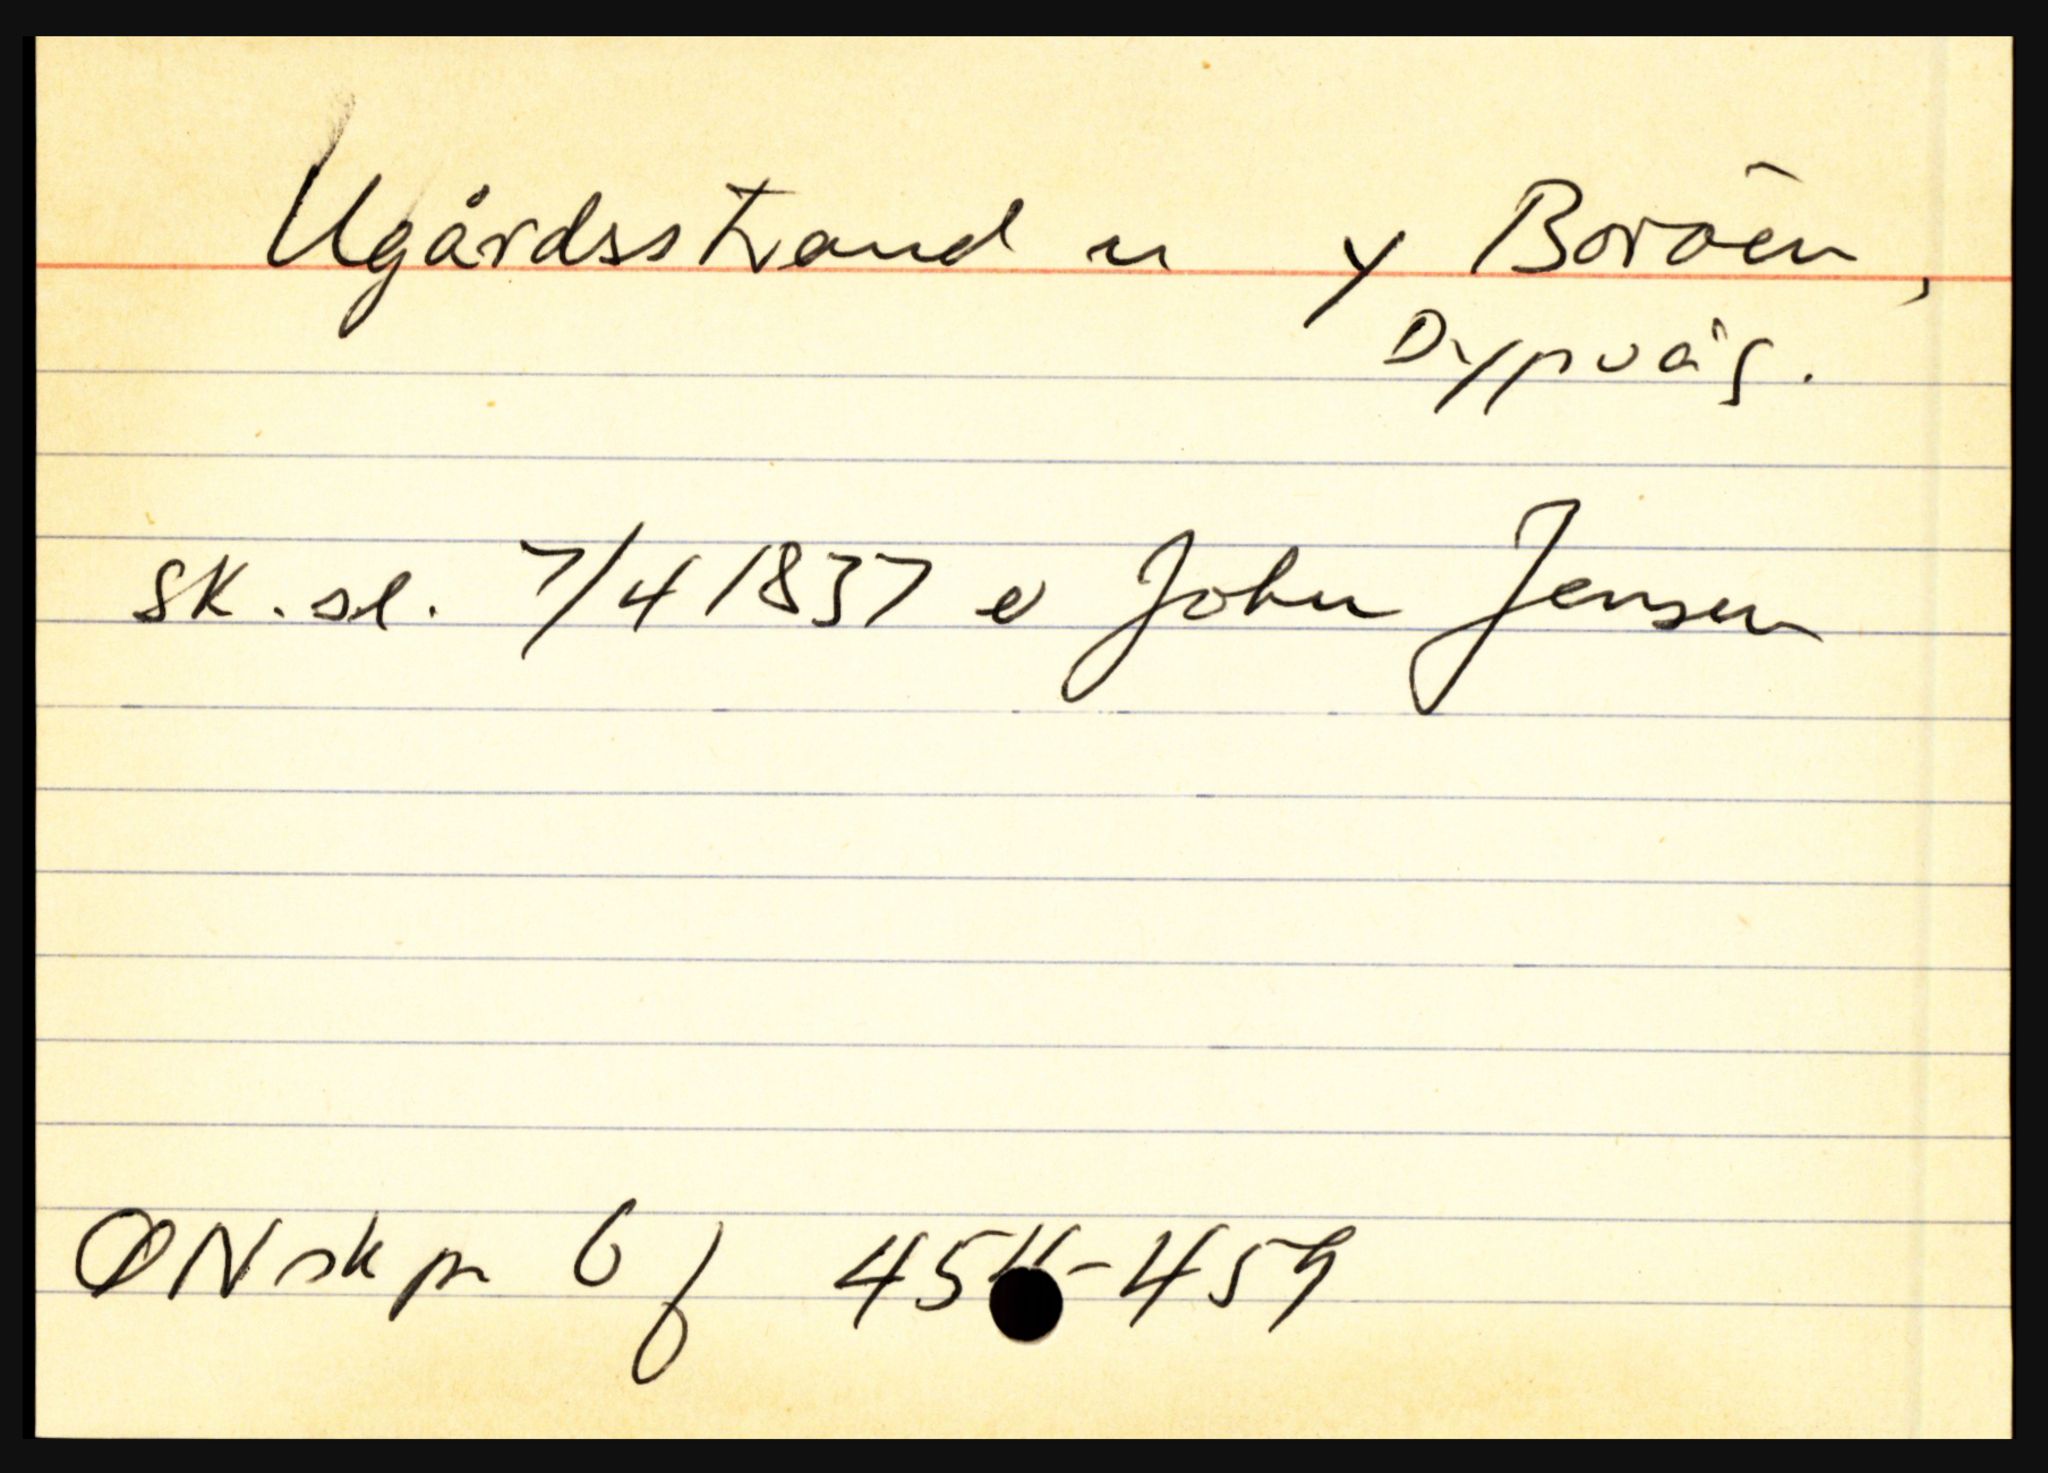 Ugårdsstrand u y Boröen,
Dypvåg.
sk. sl. 7/4 1837 e John Jensen
ØN skp 6 f -459